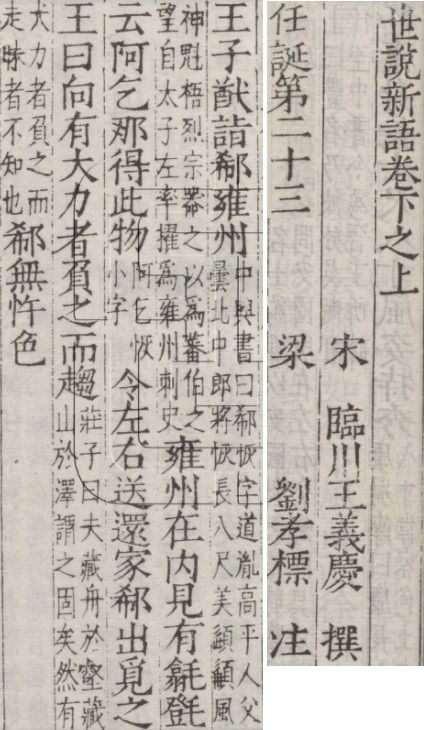 世說新語卷下之上
宋 臨川王義慶 撰
任誕第二十三 梁 劉孝標 注
王子猷詣郗雍州中興書曰郗恢字道胤高平人父曇北中郎將恢長八尺美風
神魁梧烈宗器之以爲蕃伯之望自太子左率擢爲雍州刺史雍州在內見有㲪
云阿乞那得此物阿乞恢小字令左右送還家郗出覓之
王曰向有大力者負之而趨莊子曰夫藏舟於壑藏山於澤謂之固矣然有
大力者負之而走昧者不知也郗無忤色